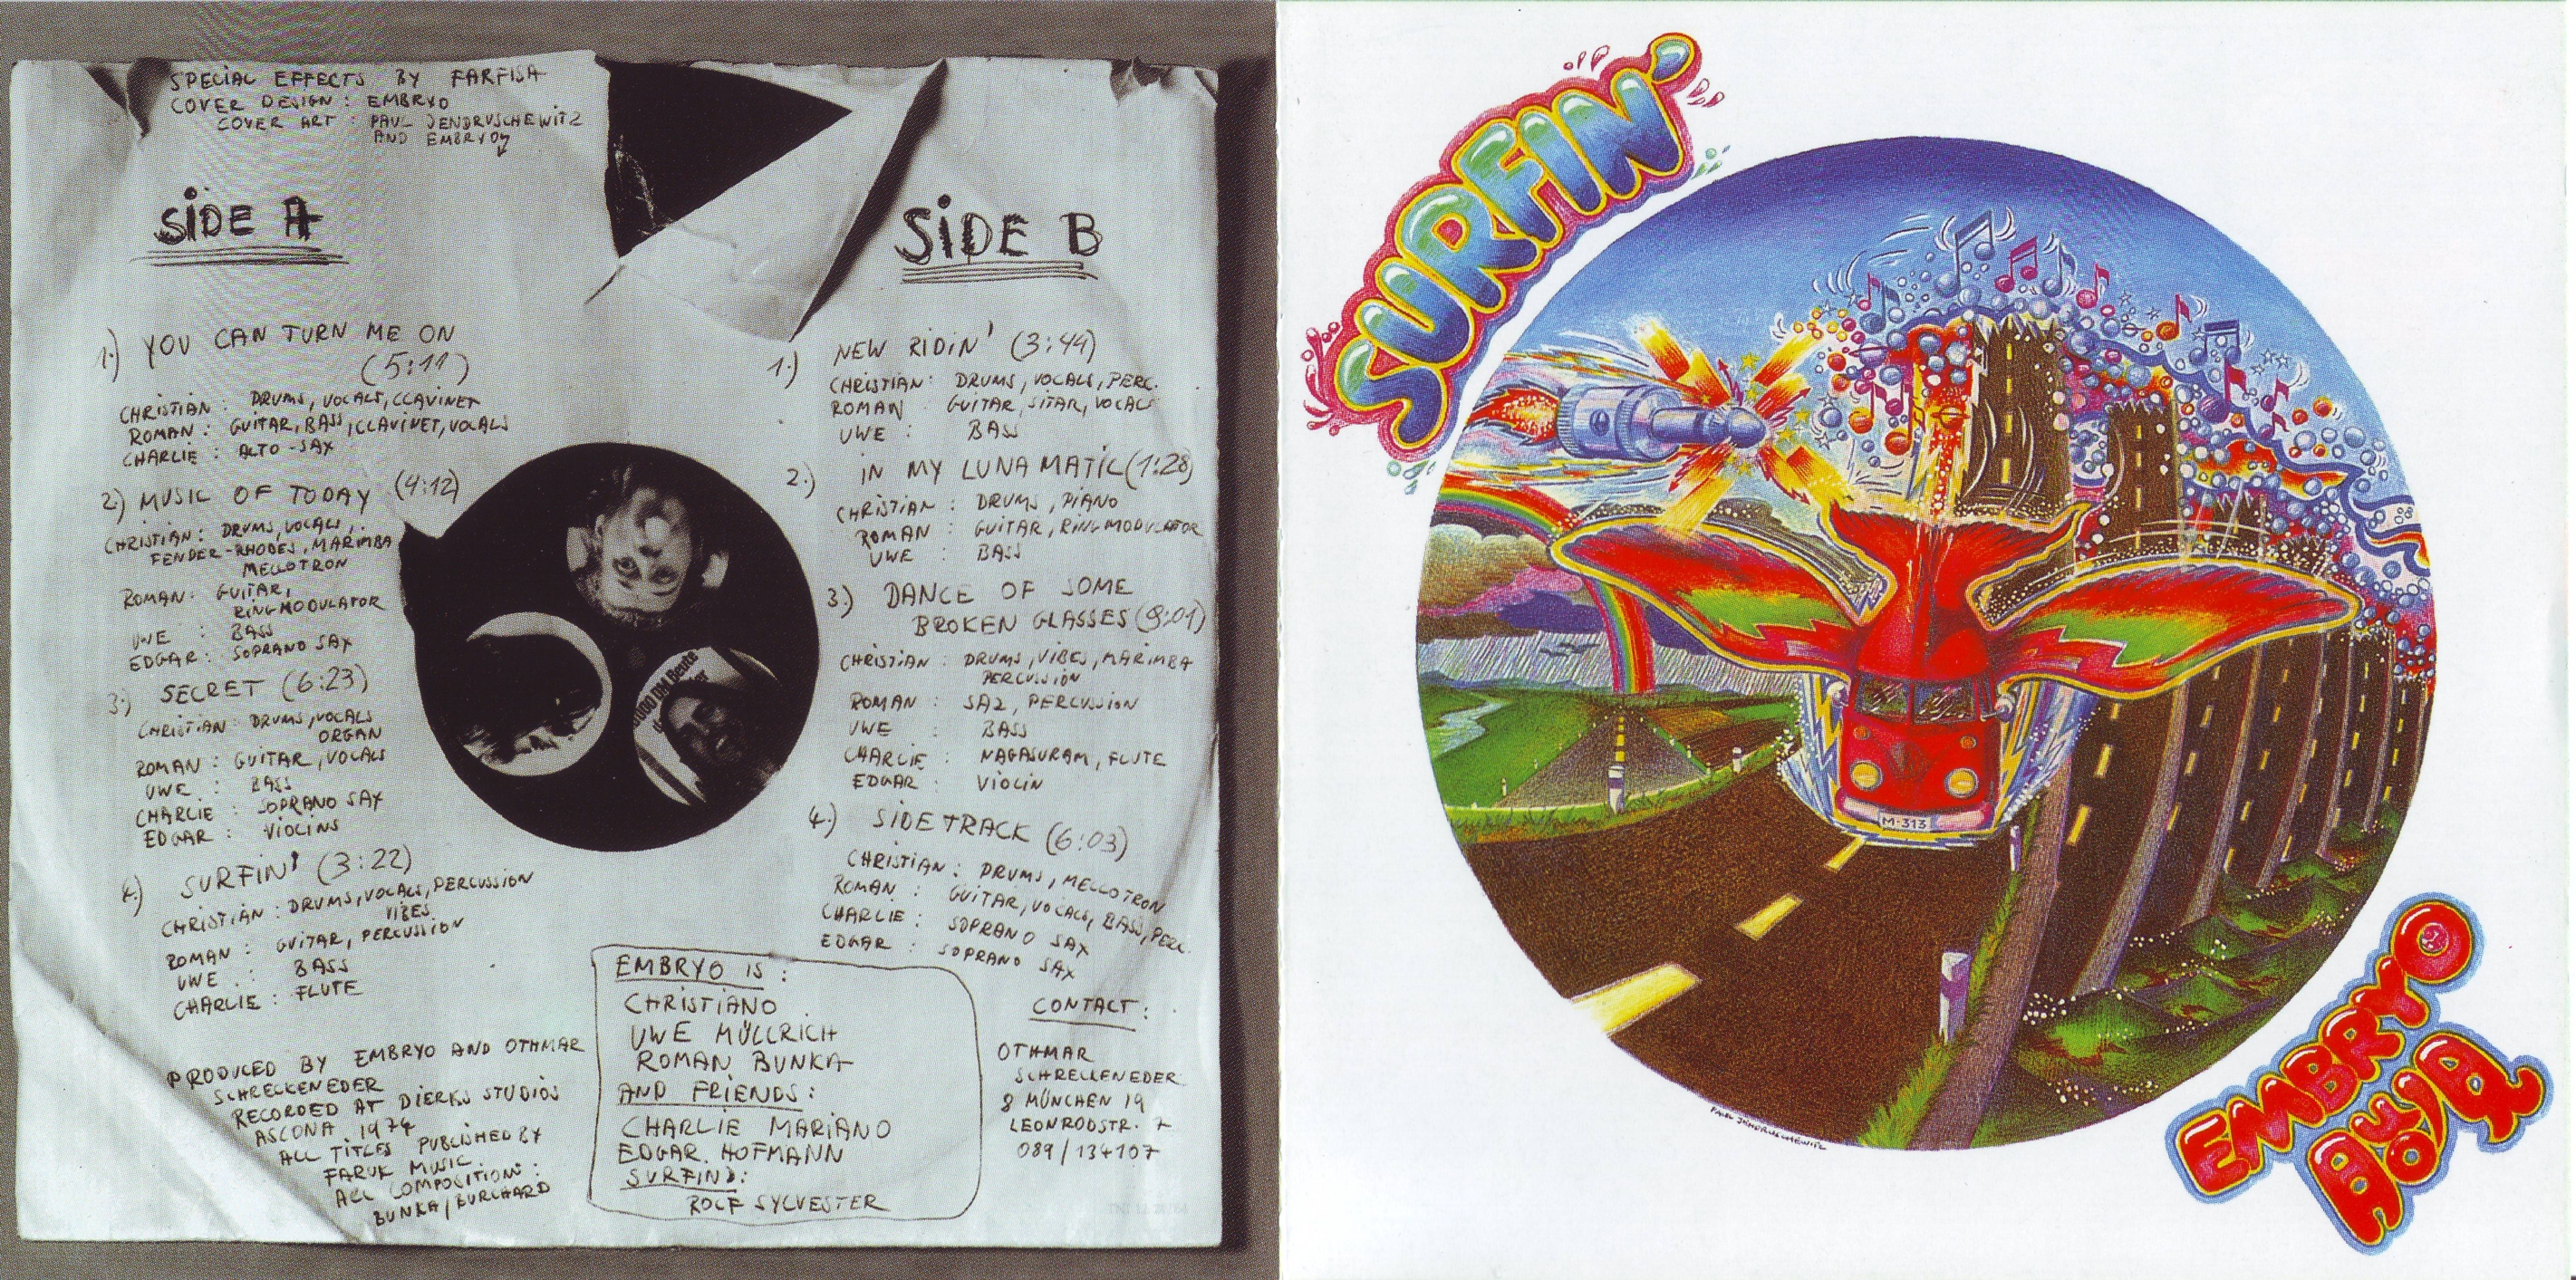 SPECIAL EFFECTS BY FARFISA
COVER DESIGN : EMBRYO
COVER ART : PAUL JENDRUSCHEWITZ
AND EMBRYO
SIDE A
1.) YOU CAN TURN ME ON
(5:11)
CHRISTIAN : DRUMS, VOCALS, CLAVINET
ROMAN : GUITAR, BASS, CLAVINET, VOCALS
CHARLIE : ALTO-SAX
2.) MUSIC OF TODAY (4:12)
CHRISTIAN : DRUMS, VOCALS,
FENDER-RHODES, MARIMBA
MELLOTRON
ROMAN : GUITAR,
RINGMODULATOR
UWE : BASS
EDGAR : SOPRANO SAX
3.) SECRET (6:23)
CHRISTIAN : DRUMS, VOCALS
ORGAN
ROMAN : GUITAR, VOCALS
UWE : BASS
CHARLIE : SOPRANO SAX
EDGAR : VIOLINS
4.) SURFIN' (3:22)
CHRISTIAN : DRUMS, VOCALS, PERCUSSION
VIBES
ROMAN : GUITAR, PERCUSSION
UWE : BASS
CHARLIE : FLUTE
PRODUCED BY EMBRYO AND OTHMAR
SCHRECKENEDER
RECORDED AT DIERKS STUDIOS
ASCONA 1974
ALL TITLES PUBLISHED BY
FARUK MUSIC
ALL COMPOSITIONS :
BUNKA/BURCHARD
1000 DM Beute
SIDE B
1.) NEW RIDIN' (3:44)
CHRISTIAN : DRUMS, VOCALS, PERC.
ROMAN : GUITAR, SITAR, VOCALS
UWE : BASS
2.) IN MY LUNA MATIC (1:28)
CHRISTIAN : DRUMS, PIANO
ROMAN : GUITAR, RINGMODULATOR
UWE : BASS
3.) DANCE OF SOME
BROKEN GLASSES (8:01)
CHRISTIAN : DRUMS, VIBES, MARIMBA
PERCUSSION
ROMAN : SAZ, PERCUSSION
UWE : BASS
CHARLIE : NAGASURAM, FLUTE
EDGAR : VIOLIN
4.) SIDETRACK (6:03)
CHRISTIAN : DRUMS, MELLOTRON
ROMAN : GUITAR, VOCALS, BASS, PERC.
CHARLIE : SOPRANO SAX
EDGAR : SOPRANO SAX
EMBRYO IS :
CHRISTIANO
UWE MÜLLRICH
ROMAN BUNKA
AND FRIENDS :
CHARLIE MARIANO
EDGAR HOFMANN
SURFIN' :
ROLF SYLVESTER
CONTACT :
OTHMAR
SCHRECKENEDER
8 MÜNCHEN 19
LEONRODSTR. 7
089/134107
SURFIN'
M-313
PAUL JENDRUSCHEWITZ
EMBRYO